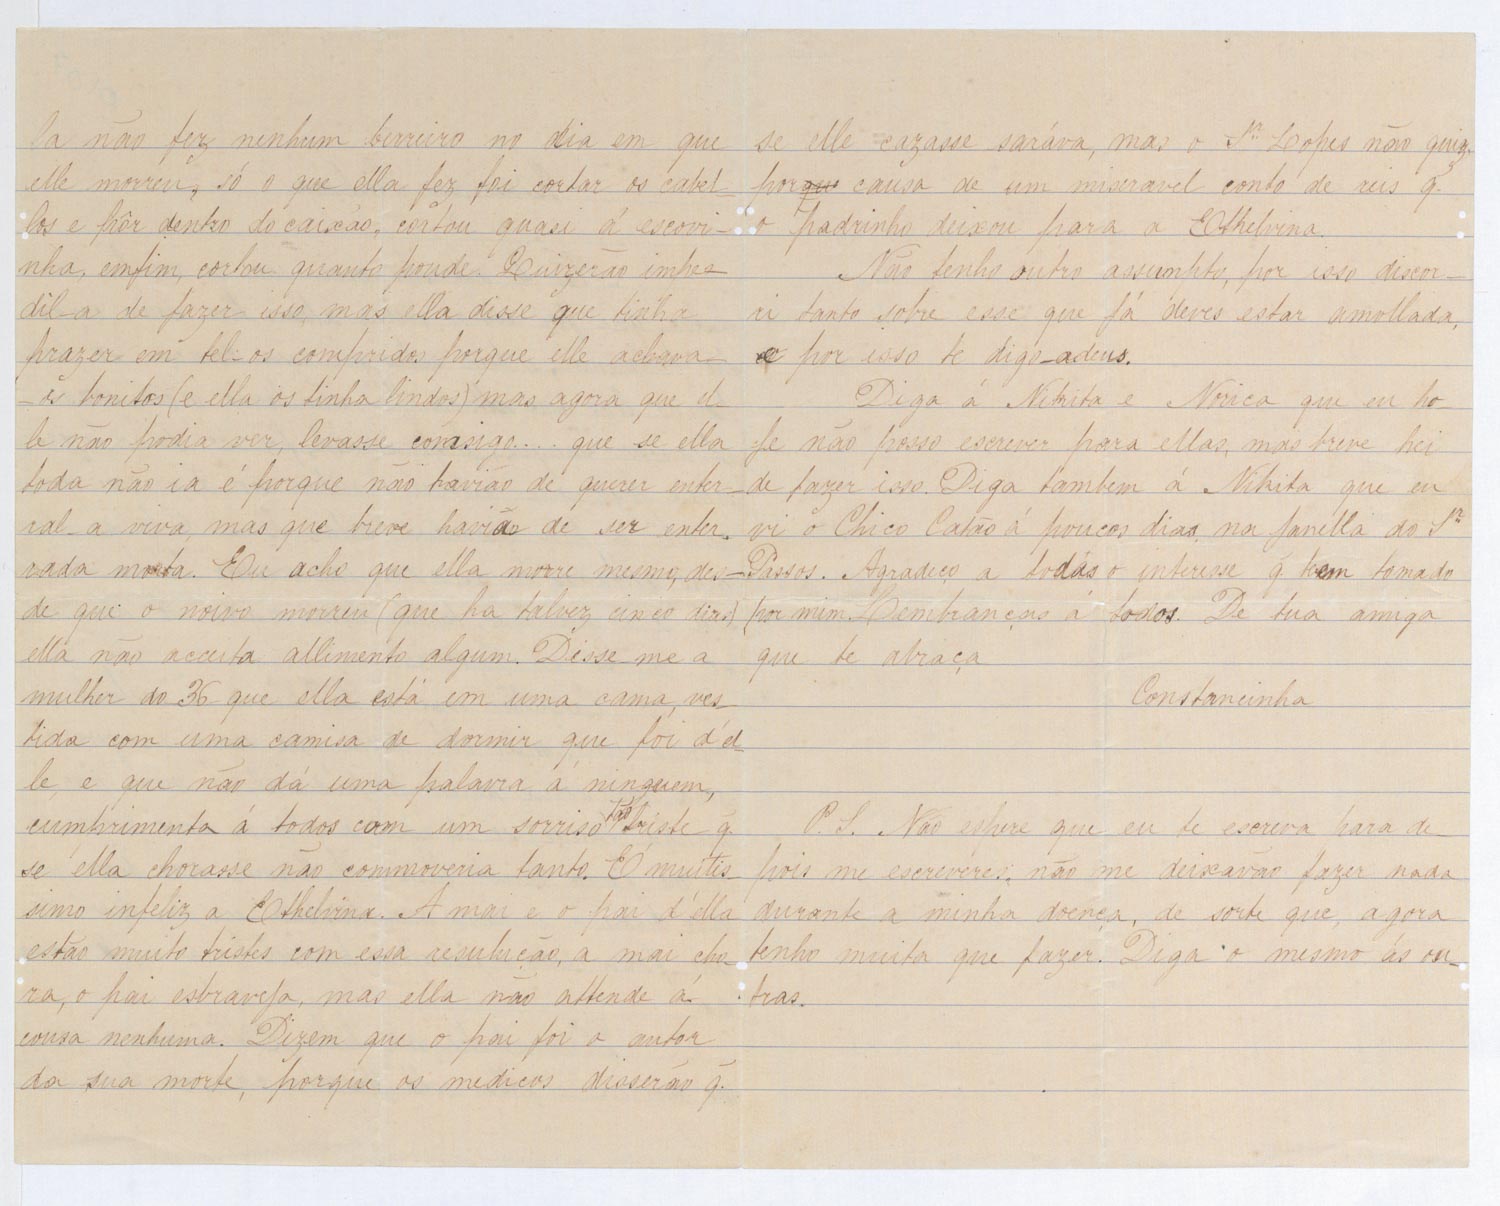 la não fez nenhum berreiro no dia em que
elle morreu, só o que ella fez foi cortar os cabel-
los e pôr dentro do caixão, cortou quasi á escovi-
nha, emfim, cortou quanto poude. Quizerão impe-
dil-a de fazer isso, mas ella disse que tinha
prazer em tel-os compridos porque elle achava-
-os bonitos (e ella os tinha lindos) mas agora que el-
le não podia ver, levasse comsigo... que se ella
toda não ia é porque não havião de querer enter-
ral-a viva, mas que breve havião de ser enter-
rada morta. Eu acho que ella morre mesmo, des-
de que o noivo morreu (que ha talvez cinco dias)
ella não acceita allimento algum. Disse-me a
mulher do 36 que ella está em uma cama, ves-
tida com uma camisa de dormir que foi d'el-
le, e que não dá uma palavra á ninguem,
cumprimenta á todos com um sorriso tão triste q̃
se ella chorasse não commoveria tanto. É muitis
simo infeliz a Ethelvina. A mai e o pai d'ella
estão muito tristes com essa resulução, a mai cho-
ra, o pai esbraveja, mas ella não attende á
cousa nenhuma. Dizem que o pai foi o autor
da sua morte, porque os medicos disserão q̃
se elle cazasse saráva, mas o Sr. Lopes não quiz
por causa de um miseravel conto de reis q̃
o padrinho deixou para a Ethelvina.
Não tenho outro assumpto, por isso discor-
ri tanto sobre esse que já deves estar amollada,
e por isso te digo-adeus.
Diga á Nihita e Norica que eu ho-
je não posso escrever para ellas, mas breve hei
de fazer isso. Diga tambem á Nihita que eu
vi o Chico Catão á poucos dias, na janella do Sr.
Passos. Agradeço a todás o interesse q̃ tem tomado
por mim. Lembranças á todos. De tua amiga
que te abraça
Constancinha
P.S. Não espere que eu te escreva para de-
pois me escreveres; não me deixavão fazer nada
durante a minha doença, de sorte que, agora
tenho muita que fazer. Diga o mesmo ás ou-
tras.